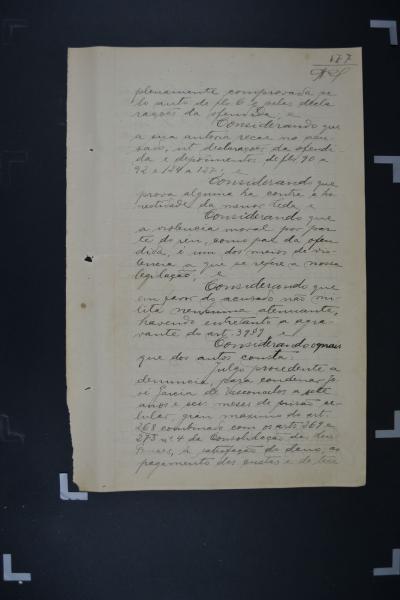 187
plenamente comprovada pe
lo auto de fls 6 e pelas decla
rações da ofendida, e
Considerando que
a sua autoria recae no acu
sado, ut declarações da ofendi
da e depoimentos de fls 90 a
92 e 124 a 127; e
Considerando que
prova alguma ha contra a ho
nestidade da menor Leda e
Considerando que
a violencia moral por par
te do reu, como pae da ofen
dida, é um dos meios de vio
lencia a que se refere a nossa
legislação, e
Considerando que
em favor do acusado não mi
lita nenhuma atenuante,
havendo entretanto a agra
vante do art. 39 § 9 e
Considerando o mais
que dos autos consta:
Julgo procedente a
denuncia, para condenar Jo
sé Garcia de Vasconcelos a sete
anos e seis meses de prisão ce
lular, grau maximo do art.
268 combinado com os arts 269 e
273 nº 4 da Consolidação das Leis
Penaes, á satisfação do dano, ao
pagamento das custas e da taxa